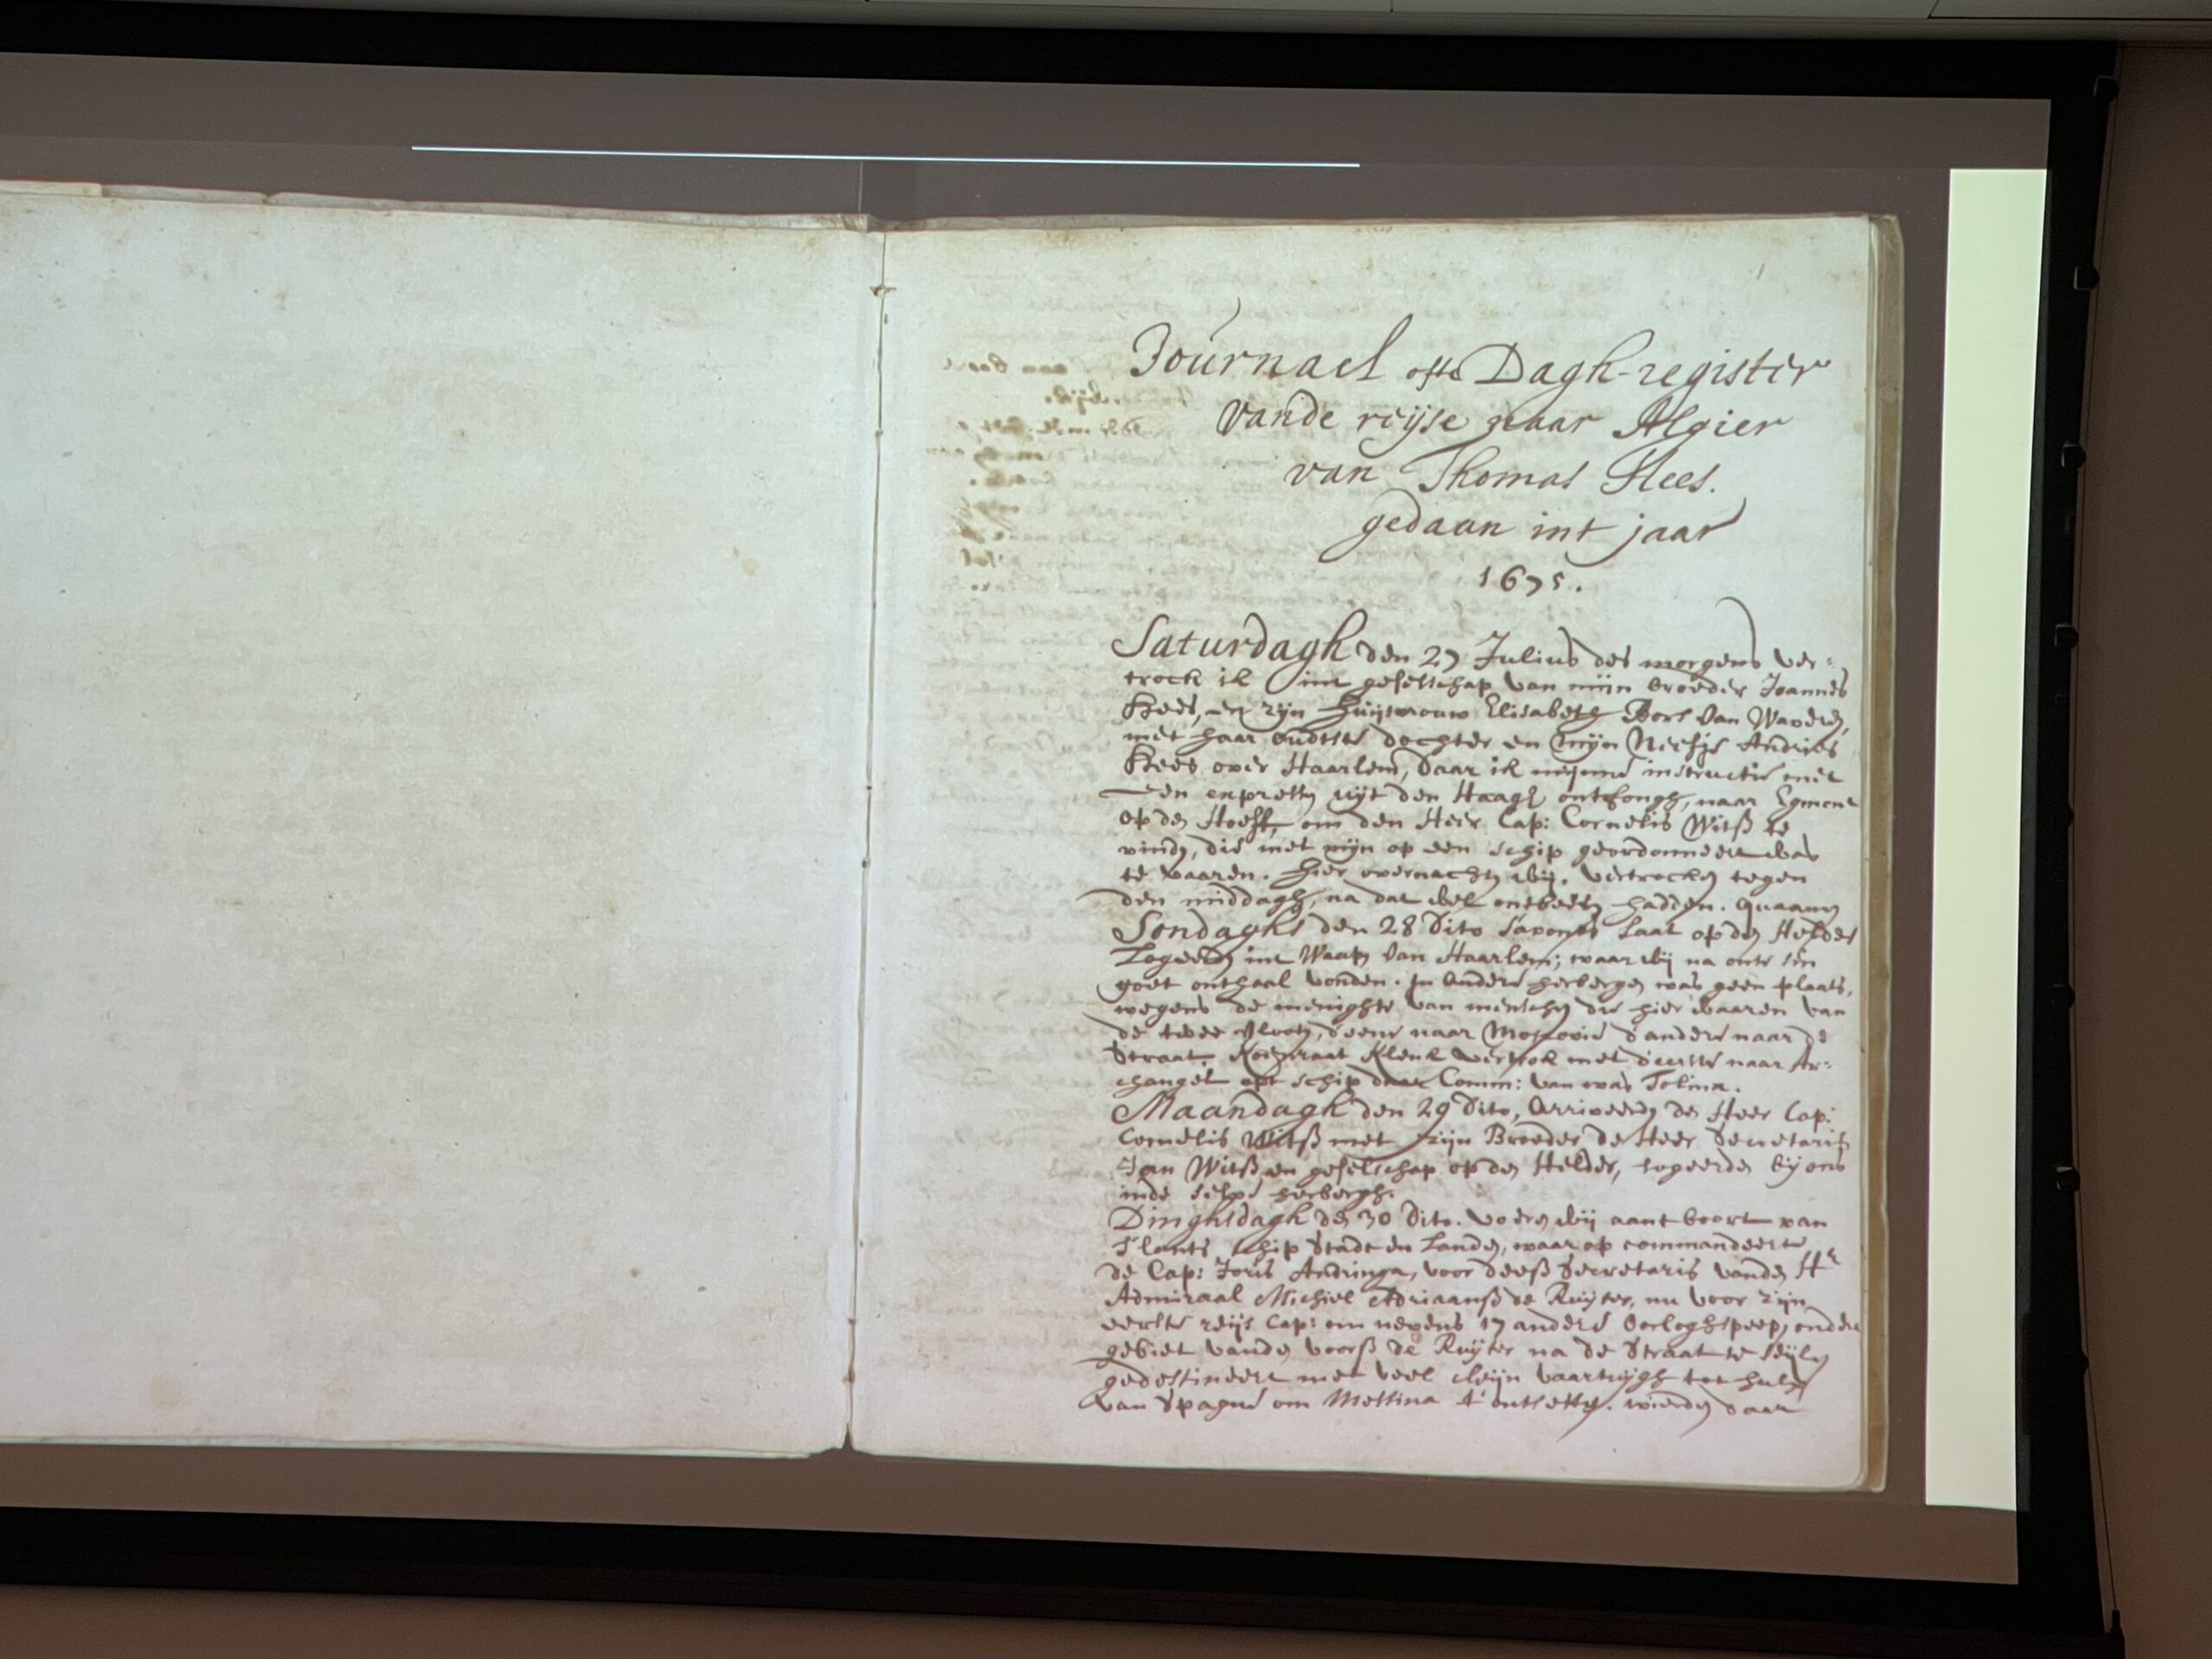 Journael ofte Dagh-register
vande reijse naar Algier
van Thomas Hees.
gedaan int jaar
1675.
Saturdagh den 27 Julius des morgens ver-
trock ik int geselschap van mijn broeder Joannes
Hees, en zijn huijsvrouw Elisabeth Bors van Waveren,
met haar oudste dochter en mijn Neefje Andries
Hees over Haarlem, daar ik mijne instructie met
een expresse uijt den Haagh ontfongh, naar Egmont
op den Hoeff, om den Heer Cap: Cornelis Witsz te
vinden, die met mijn op een schip geordonneert was
te vaaren. hier overnachten wij. vertrocken tegen
den middagh, na dat wel ontbeeten hadden. quaamen
Sondaghs den 28 dito savonts laat op den Helder
Logeerden int Waapen van Haarlem; waar wij na onse sin
goet onthaal vonden. In andere herbergen was geen plaats,
wegens de menighte van menschen die hier waaren van
de twee vlooten, d'eene naar Moscovie d'andere naar de
Straat. Koenraat Klenk vertrok met d'eerste naar Ar-
changel opt schip daar Comm: van was Tolma.
Maandagh den 29 dito, Arriveerden de Heer Cap:
Cornelis Witsz met zijn Broeder de Heer Secretaris
Jan Witsz en geselschap op den Helder, logeerden bij ons
inde selve herbergh.
Dinghsdagh den 30 dito. voeren wij aant boort van
s'Lants schip Stadt en Landen, waar op commandeerde
de Cap: Joris Andringa, voor deesz Secretaris vanden Hr
Admiraal Michiel Adriaansz de Ruijter, nu voor zijn
eerste reijs Cap: om nevens 17 andere Oorloghscheepen onder
gebiet vanden voorsz de Ruijter na de Straat te seijlen
gedestineert met veel cleijn vaartuijgh tot hulp
van Spagne om Messina t'ontsetten. wierden daar